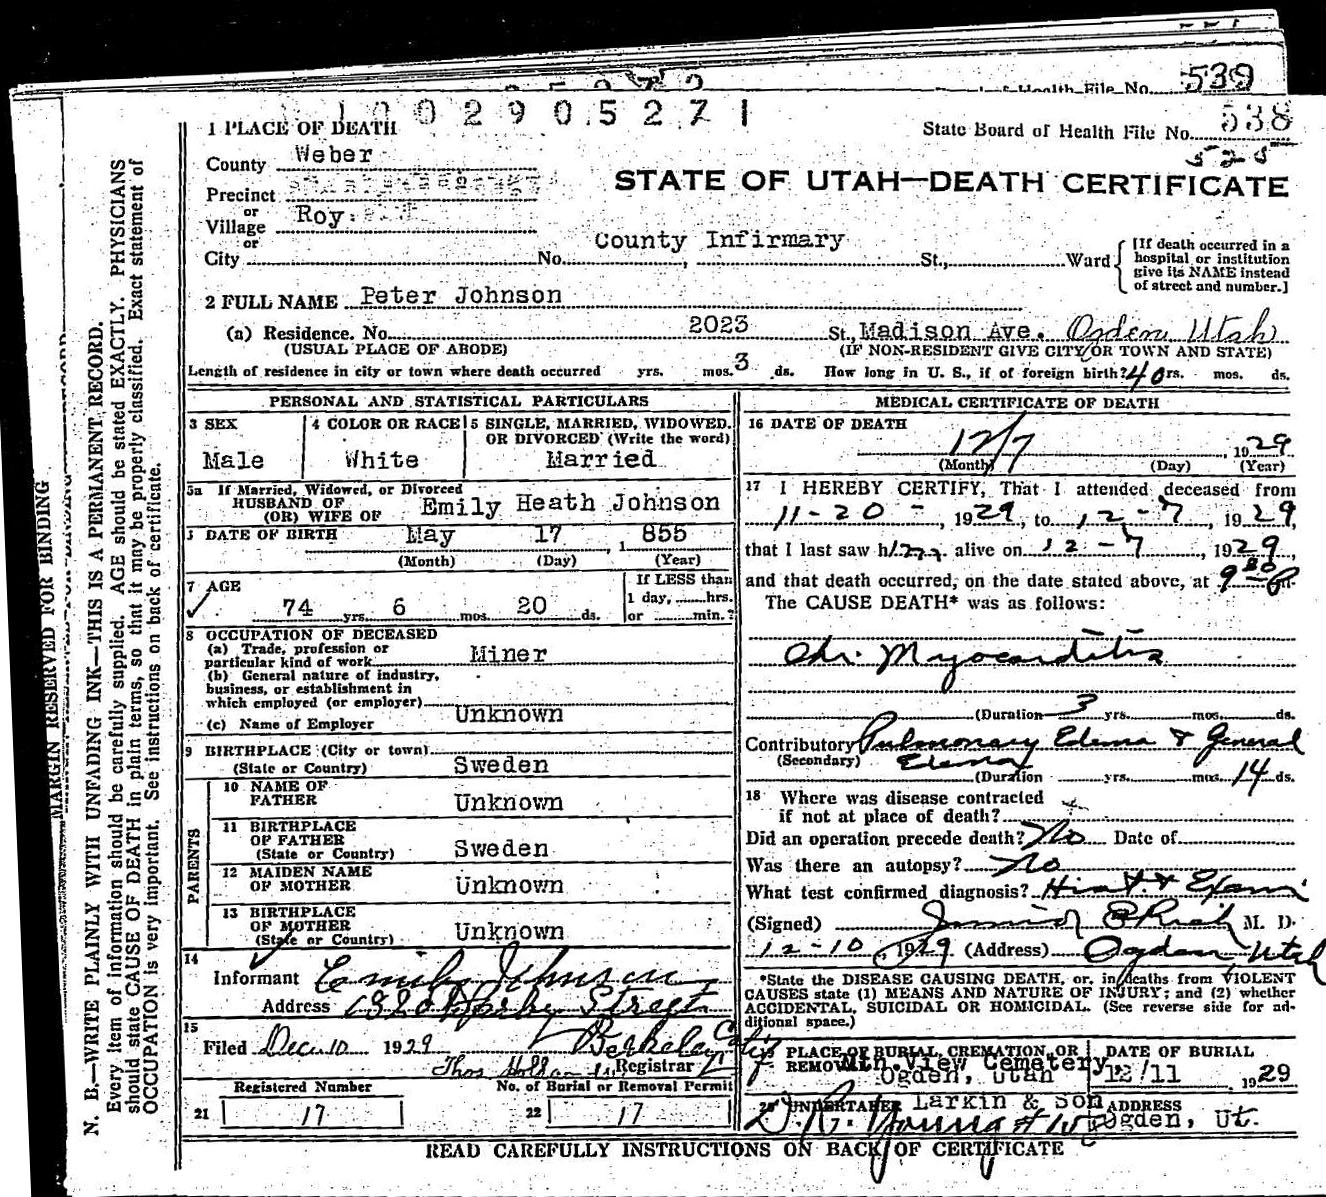 Health File No. 539
1002905271
State Board of Health File No. 538
525
STATE OF UTAH—DEATH CERTIFICATE
1 PLACE OF DEATH
County Weber
Precinct
or
Village Roy
or
City No. County Infirmary St., Ward
[If death occurred in a hospital or institution give its NAME instead of street and number.]
2 FULL NAME Peter Johnson
(a) Residence. No. 2023 St., Madison Ave. Ogden Utah
(USUAL PLACE OF ABODE) (IF NON-RESIDENT GIVE CITY OR TOWN AND STATE)
Length of residence in city or town where death occurred yrs. mos. 3 ds. How long in U. S., if of foreign birth? 40 rs. mos. ds.
PERSONAL AND STATISTICAL PARTICULARS
3 SEX
Male
4 COLOR OR RACE
White
5 SINGLE, MARRIED, WIDOWED, OR DIVORCED (Write the word)
Married
5a If Married, Widowed, or Divorced
HUSBAND OF
(OR) WIFE OF Emily Heath Johnson
DATE OF BIRTH May 17, 1 855
(Month) (Day) (Year)
7 AGE
74 yrs. 6 mos. 20 ds.
If LESS than
1 day, hrs.
or min.?
8 OCCUPATION OF DECEASED
(a) Trade, profession or
particular kind of work Miner
(b) General nature of industry,
business, or establishment in
which employed (or employer)
Unknown
(c) Name of Employer
9 BIRTHPLACE (City or town)
(State or Country) Sweden
PARENTS
10 NAME OF
FATHER Unknown
11 BIRTHPLACE
OF FATHER
(State or Country) Sweden
12 MAIDEN NAME
OF MOTHER Unknown
13 BIRTHPLACE
OF MOTHER
(State or Country) Unknown
14
Informant Emily Johnson
Address Street
Berkeley Calif
15
Filed Dec. 10 1929
Registrar
Registered Number
21 17
No. of Burial or Removal Permit
22 17
MEDICAL CERTIFICATE OF DEATH
16 DATE OF DEATH
12/7, 1929
(Month) (Day) (Year)
17 I HEREBY CERTIFY, That I attended deceased from
11-20-, 1929, to 12-7, 1929,
that I last saw him alive on 12-7, 1929,
and that death occurred, on the date stated above, at 9 P m.
The CAUSE DEATH* was as follows:
Chr. Myocarditis
(Duration 3 yrs. mos. ds.
Contributory Pulmonary Edema & General
(Secondary) Edema
(Duration yrs. mos. 14 ds.
18 Where was disease contracted
if not at place of death?
Did an operation precede death? No Date of
Was there an autopsy? No
What test confirmed diagnosis? Hist. & Exam
(Signed) M. D.
12-10, 1929 (Address) Ogden, Utah
*State the DISEASE CAUSING DEATH, or, in deaths from VIOLENT
CAUSES state (1) MEANS AND NATURE OF INJURY; and (2) whether
ACCIDENTAL, SUICIDAL OR HOMICIDAL. (See reverse side for ad-
ditional space.)
PLACE OF BURIAL, CREMATION, OR REMOVAL Mtn. View Cemetery,
Ogden, Utah
DATE OF BURIAL
12/11 1929
20 UNDERTAKER Larkin & Son
ADDRESS
Ogden, Ut.
READ CAREFULLY INSTRUCTIONS ON BACK OF CERTIFICATE
MARGIN RESERVED FOR BINDING
N. B.—WRITE PLAINLY WITH UNFADING INK—THIS IS A PERMANENT RECORD.
Every item of information should be carefully supplied. AGE should be stated EXACTLY. PHYSICIANS
should state CAUSE OF DEATH in plain terms, so that it may be properly classified. Exact statement of
OCCUPATION is very important. See instructions on back of certificate.